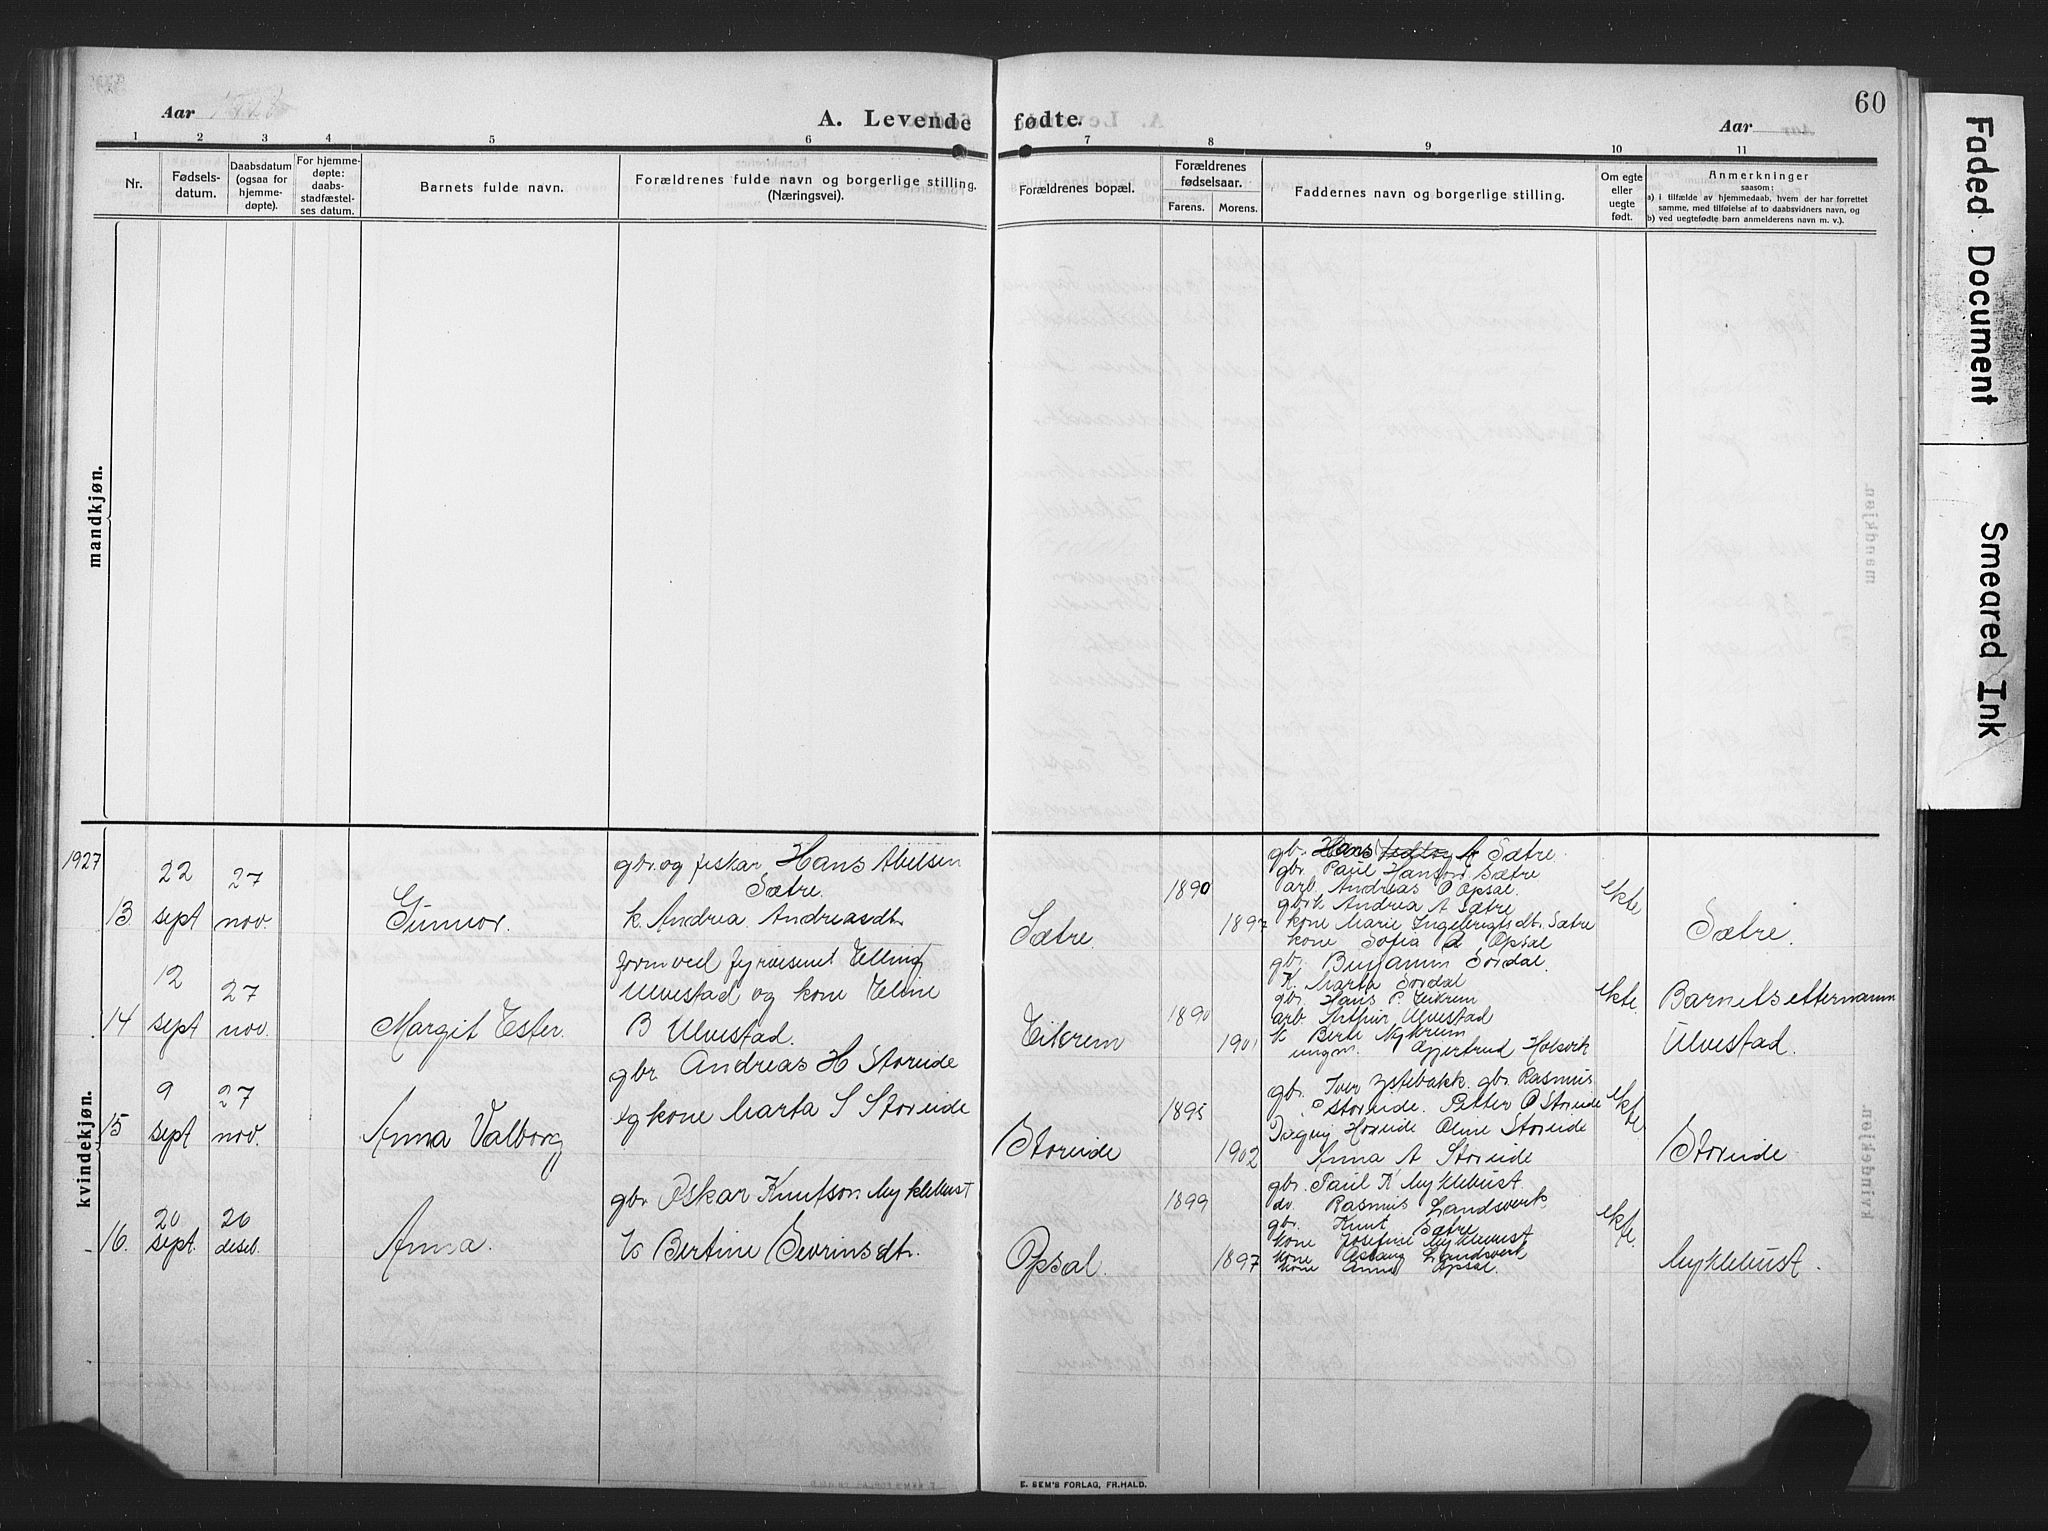 60
Aar
A. Levende fødte.
Aar
1 2 3 4 5 6 7 8 9 10 11
Nr.
Fødsels-
datum.
Daabsdatum
(ogsaa for
hjemme-
døpte).
For hjemme-
døpte:
daabs-
stadfæstel-
ses datum.
Barnets fulde navn.
Forældrenes fulde navn og borgerlige stilling.
(Næringsvei).
Forældrenes bopæl.
Forældrenes
fødselsaar.
Farens. Morens.
Faddernes navn og borgerlige stilling.
Om egte
eller
uegte
født.
Anmerkninger
saasom:
a) i tilfælde av hjemmedaab, hvem der har forrettet
samme, med tilføielse af to daabsvidners navn, og
b) ved uegtefødte børn anmelderens navn m. v.).
mandkjøn.
kvindekjøn.
1927
13.
22
sept
27
nov.
Gunnor.
gbr. og fiskar Hans Abelsen
Sætre.
k. Andrea Andreasdt.
Sætre.
1890
1897
gbr. Hans A Sætre.
gbr. Paul Hanson Sætre
arb. Andreas O Opsal.
gbrk Andrea A Sætre
kone Marie Ingebrigtsdt. Sætre
kone Sofia A Opsal
ekte
Sætre.
14
12
sept
27
nov.
Margit Ester.
formved fyrvesenet Elling
Ulvestad og kone Eline
B Ulvestad.
Eikrem
1890
1901
gbr. Benjamin Sordal.
K. Marta Sordal
gbr. Hans P. Eikrem
arb. Arthur Ulvestad
k Berte Nykrem
ungm. Gjertrud Holsvik
ekte.
Barnets etternamn
Ulvestad.
15
9
sept
27
nov.
Anna Valborg
gbr Andreas H Storeide
og kone Marta S Storeide
Storeide
1895
1902
gbr. Iver Ystebøkk. gbr. Rasmus
P Storeide. Petter O Storeide
Dagny Horeide Oline Storeide
Anna A Storeide
ekte
Storeide
16.
20
sept.
26
deseb.
Anna.
gbr Oskar Knutson Myklebust
k Bertine Sevrinsdt.
Opsal.
1899
1897
gbr. Paul K Myklebust.
do. Rasmus Landsverk
gbr. Knut Sætre
kone Josefine Myklebust
kone Aslaug Landsverk
kone Anna Opsal.
ekte.
Myklebust.
E. SEM'S FORLAG, FR.HALD.
Faded Document
Smeared Ink